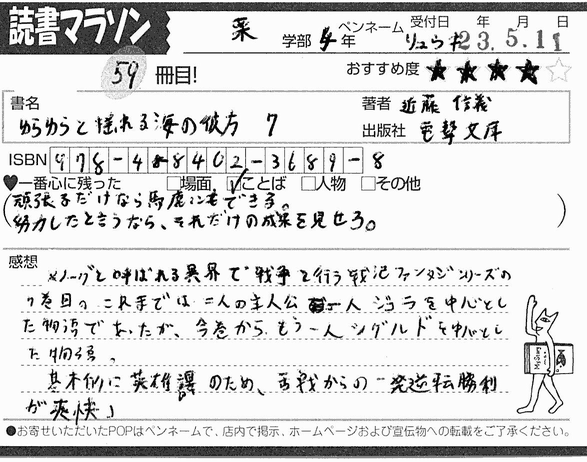 読書マラソン
薬 学部 4年 ペンネーム リュウナ 受付日 年 月 日 23.5.11
59 冊目! おすすめ度 ★★★★☆
書名 ゆらゆらと揺れる海の彼方 7
著者 近藤 信義
出版社 電撃文庫
ISBN 978-4-8402-3689-8
♥一番心に残った □場面 ☑ことば □人物 □その他
頑張るだけなら馬鹿にもできる。
努力したと言うなら、それだけの成果を見せろ。
感想
メノーグと呼ばれる異界で戦争を行う戦記ファンタジーシリーズの
7巻目。これまでは二人の主人公 一人 ジュラを中心とし
た物語であったが、今巻から、もう一人シグルドを中心とし
た物語。
基本的に英雄譚のため、苦戦からの一発逆転勝利
が爽快」
●お寄せいただいたPOPはペンネームで、店内で掲示、ホームページおよび宣伝物への転載をご了承ください。